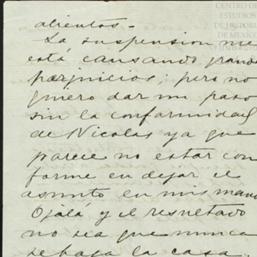 alientos.-
La suspension me
está causando grandes
perjuicios; pero no
quiero dar un paso
sin la conformidad
de Nicolas ya que
parece no estar con
forme en dejar el
asunto en mis manos
Ojalá y el resultado
no sea que nunca
se haga la casa.
CENTRO DE
ESTUDIOS
DE HISTORIA
DE MEXICO